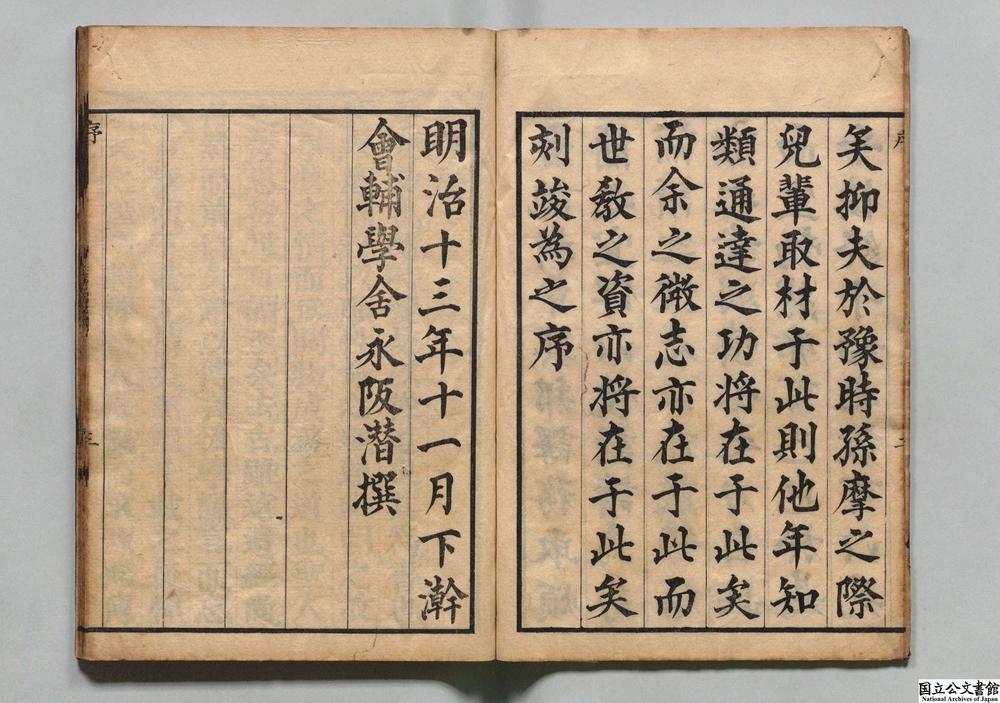 矣抑夫於豫時孫摩之際
兒輩取材于此則他年知
類通達之功將在于此矣
而余之微志亦在于此而
世敎之資亦將在于此矣
刻竣為之序
明治十三年十一月下澣
會輔學舍永阪潜撰
序
三
国立公文書館
National Archives of Japan